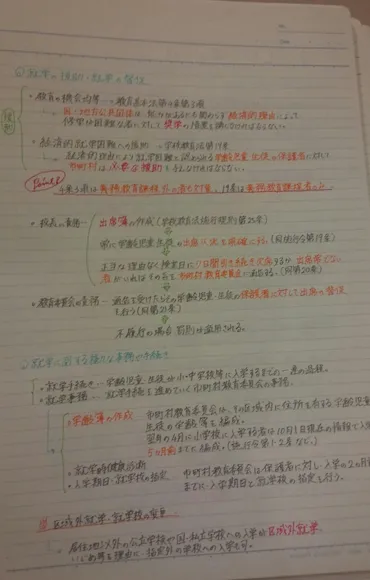 ◎就学の援助・就学の督促
援助
・教育の機会均等 … 教育基本法第4条第3項
国・地方公共団体は、能力があるにも関わらず、経済的理由によって
修学が困難な者に対して、奨学の措置を講じなければならない。
・経済的就学困難への援助 … 学校教育法第19条
経済的理由により就学困難と認められる学齢児童生徒の保護者に対して
市町村は、必要な援助を与えなければならない。
Point!
4条3項は義務教育課程外の者も対象、19条は義務教育課程者のみ
・校長の責務 … 出席簿の作成（学校教育法施行規則第25条）
常に学齢児童生徒の出席状況を明確にする。（同施行令第19条）
正当な理由なく休業日に7日間引き続き欠席するか、出席等よくない
者がいればその旨を市町村教育委員会に通知する。（同第20条）
・教育委員会の責務 … 通知を受けたらその学齢児童・生徒の保護者に対して出席の督促
を行う（同第21条）
不履行の場合、罰則が適用される。
◎就学に関する様々な事務や手続き
・就学手続き … 学齢児童・生徒が小・中学校等に入学するまでの一連の過程。
・就学事務 … 就学手続きを進めていく市町村教育委員会の事務。
・学齢簿の作成 市町村教育委員会は、その区域内に住所を有する学齢児童
生徒の学齢簿を編成。
翌年の4月に小学校に入学する者は10月1日現在の情報で入学
5カ月前までに編成。（施行令第1・2条など。）
・就学時健康診断
・入学期日・就学校の指定 市町村教育委員会は保護者に対し、入学の2カ月前
までに、入学期日と就学校の指定を行う。
区域外就学・就学校の変更
居住地以外の公立学校や国・私立学校への入学は区域外就学
いじめ等を理由に、指定外の学校への入学も可。